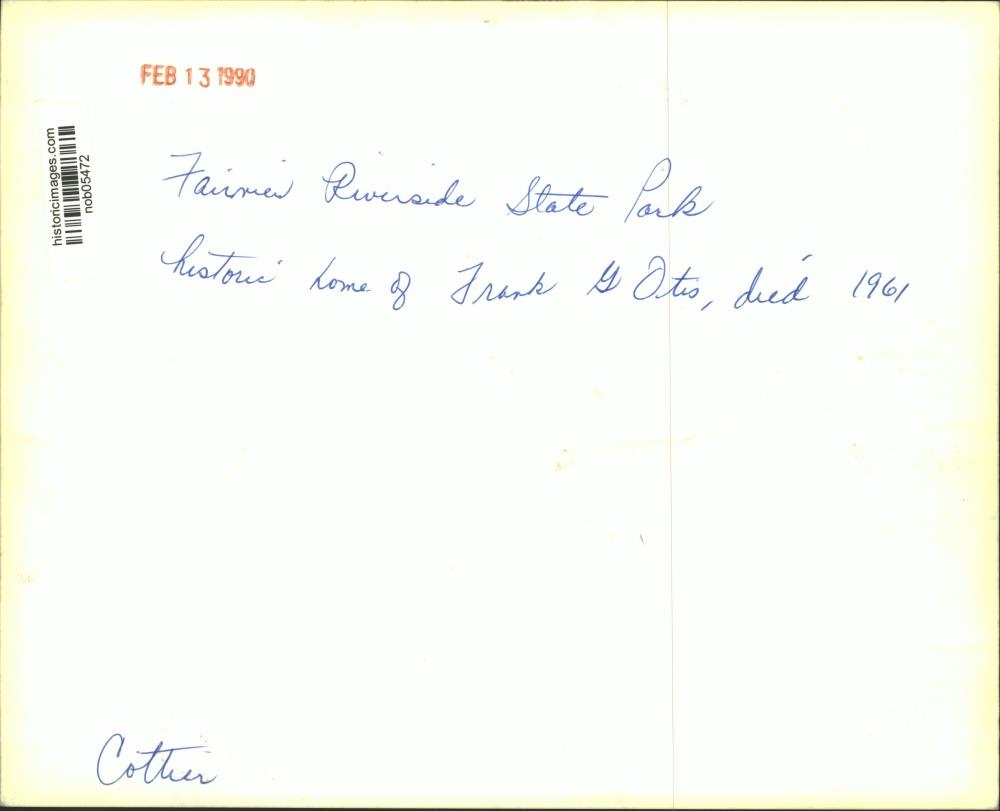 FEB 13 1990
historicimages.com
nob05472
Fairview Riverside State Park
historic home of Frank G Otis, died 1961
Cottier